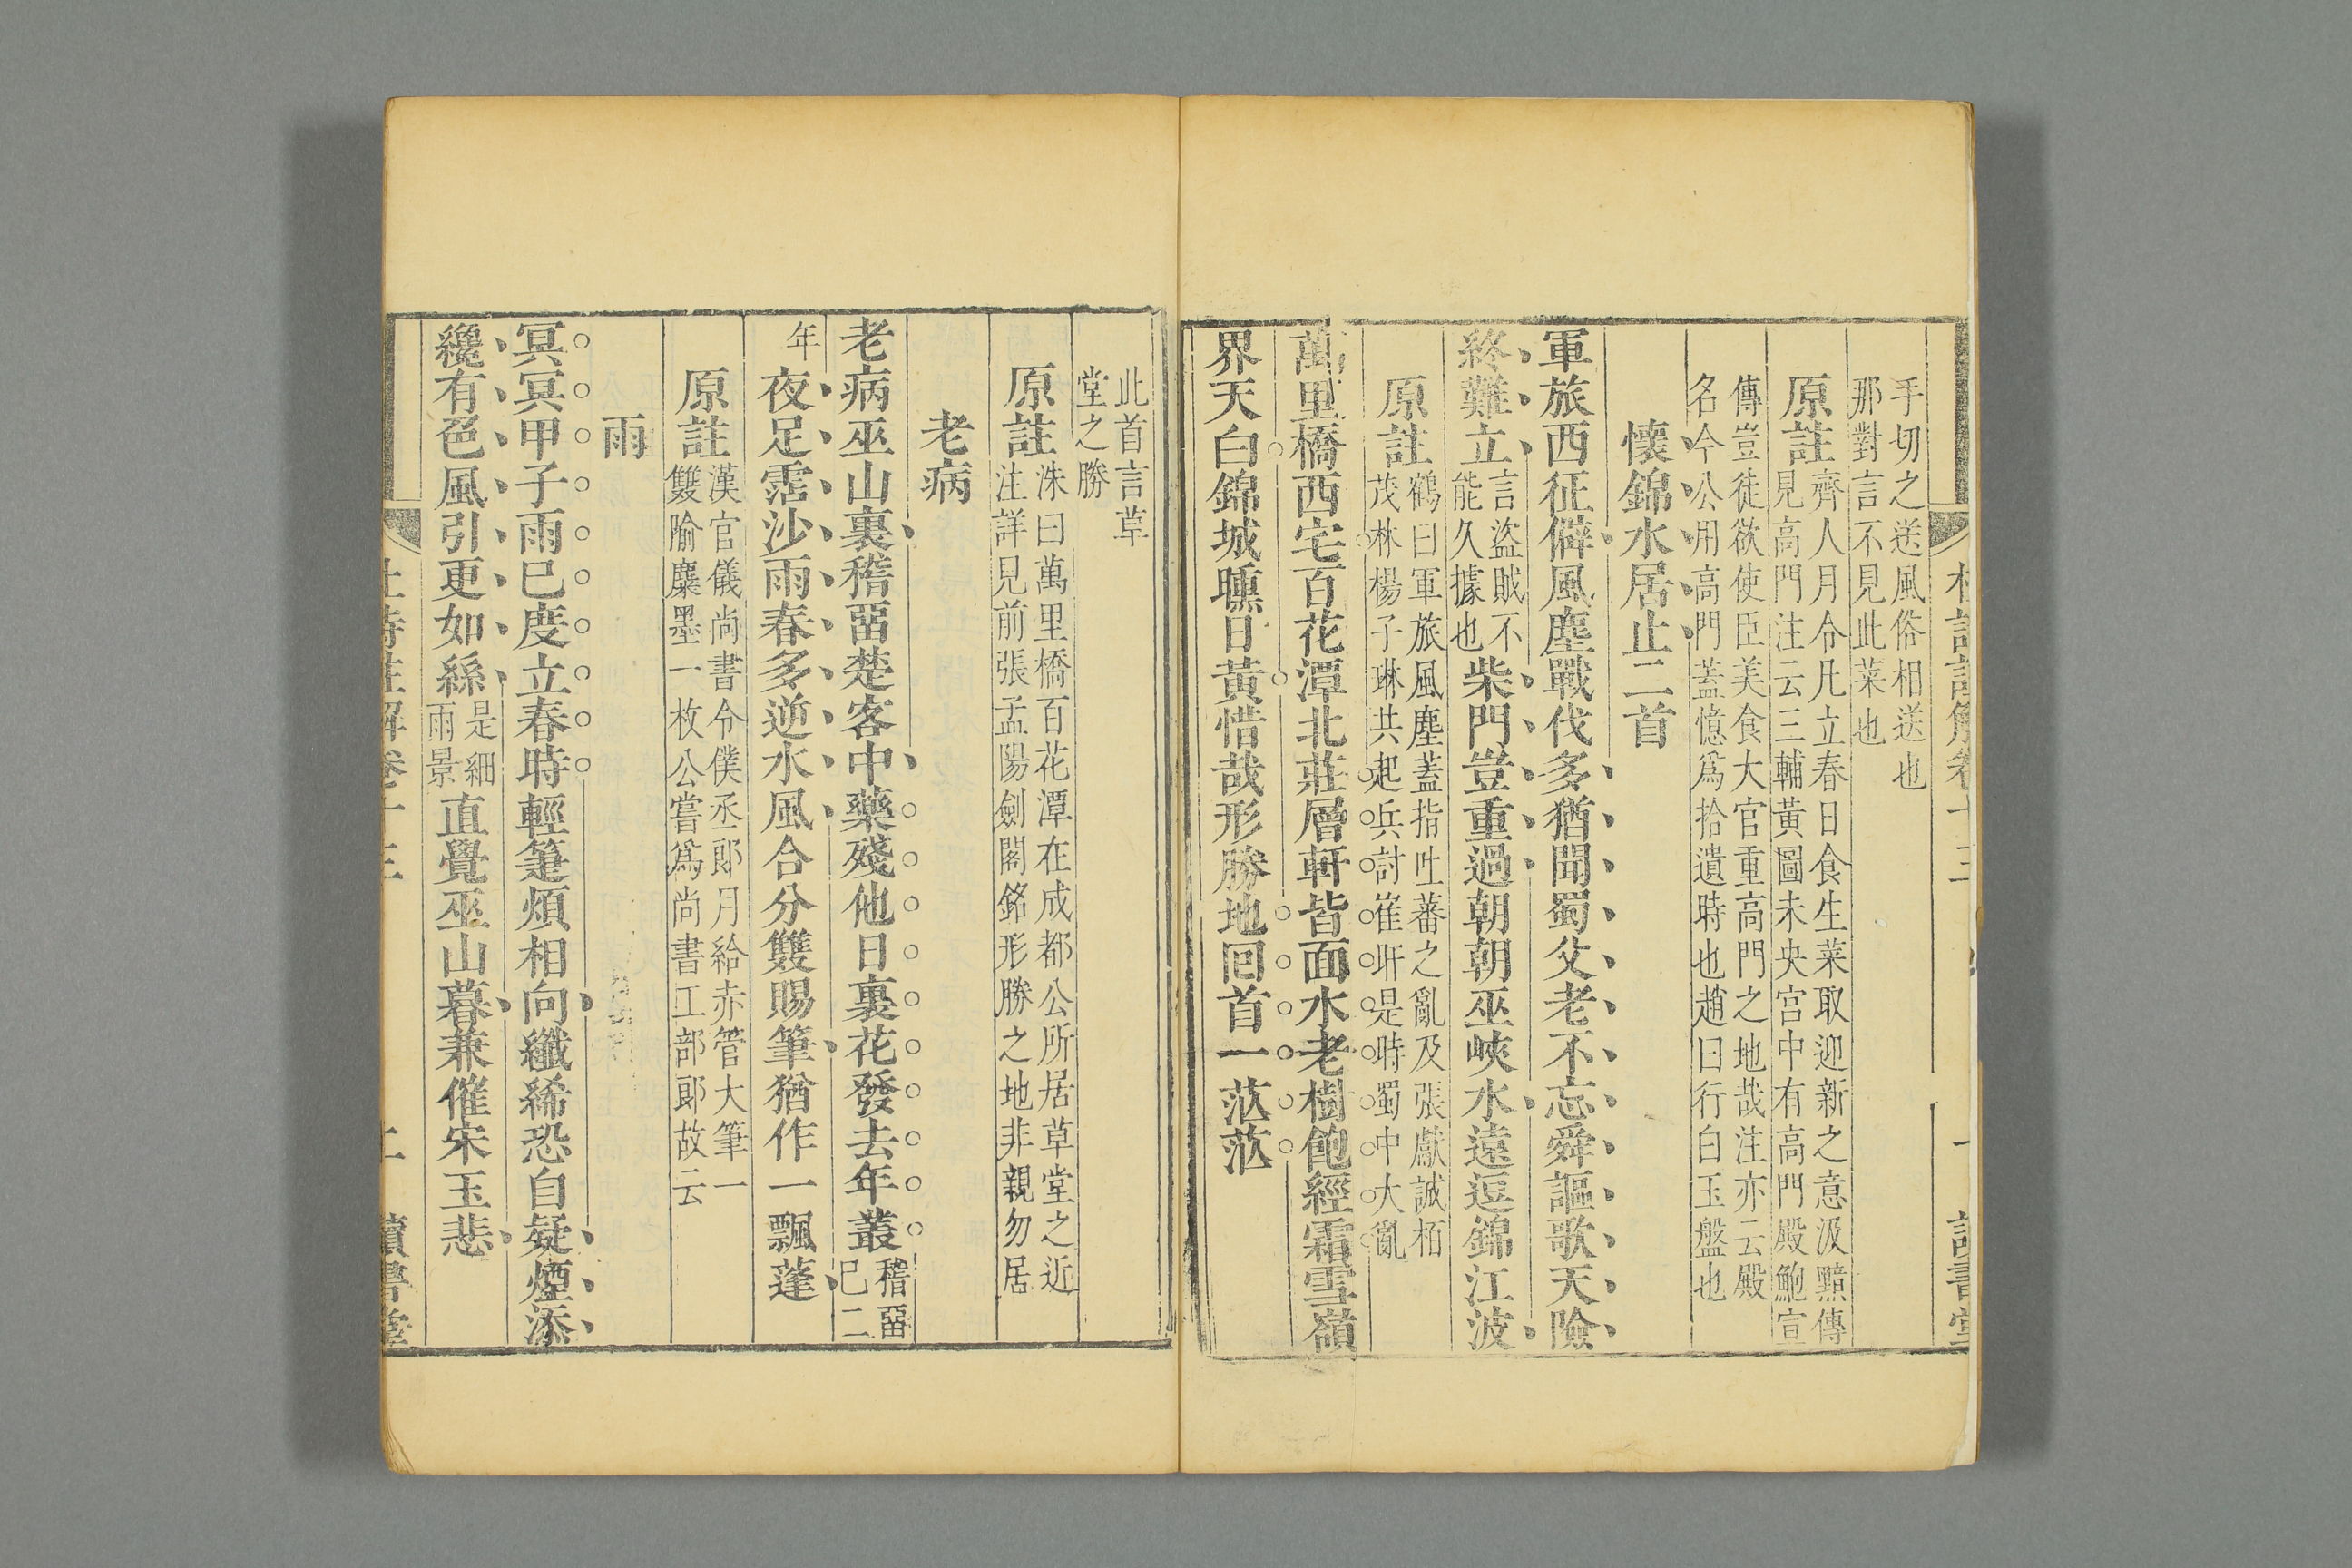 杜詩註解卷十三 一 讀書堂
手切之送風俗相送也
那對言不見此菜也
原註 齊人月令凡立春日食生菜取迎新之意汲黯傳
見高門注云三輔黃圖未央宮中有高門殿鮑宣
傳豈徒欲使臣美食大官重高門之地哉注亦云殿
名今公用高門蓋憶爲拾遺時也趙曰行白玉盤也
懷錦水居止二首
軍旅西征僻風塵戰伐多猶聞蜀父老不忘舜謳歌天險
終難立 言盜賊不
能久據也 柴門豈重過朝朝巫峽水遠逗錦江波
原註 鶴曰軍旅風塵蓋指吐蕃之亂及張獻誠栢
茂林楊子琳共起兵討崔旰是時蜀中大亂
萬里橋西宅百花潭北莊層軒皆面水老樹飽經霜雪嶺
界天白錦城曛日黃惜哉形勝地回首一茫茫
此首言草
堂之勝
原註 洙曰萬里橋百花潭在成都公所居草堂之近
注詳見前張孟陽劍閣銘形勝之地非親勿居
老病
老病巫山裏稽畱楚客中藥殘他日裏花發去年叢 稽畱
已二
年 夜足霑沙雨春多逆水風合分雙賜筆猶作一飄蓬
原註 漢官儀尚書令僕丞郞月給赤管大筆一
雙隃麋墨一枚公嘗爲尚書工部郞故云
雨
冥冥甲子雨已度立春時輕箑煩相向纖絺恐自疑煙添
纔有色風引更如絲 是細
雨景 直覺巫山暮兼催宋玉悲
杜詩註解卷十三 二 讀書堂